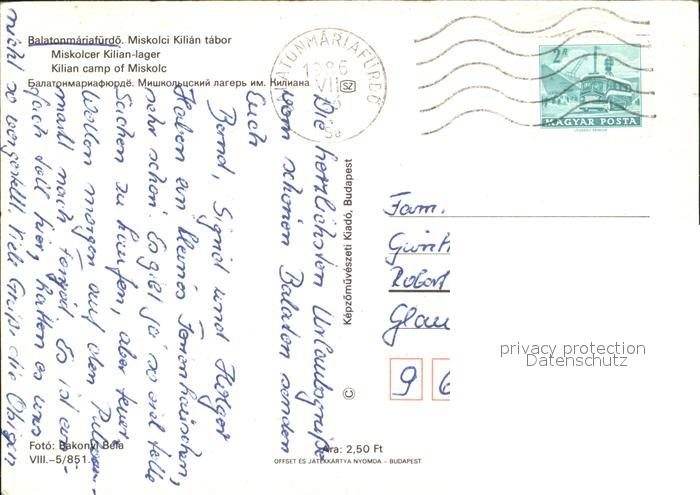 Balatonmáriafürdő. Miskolci Kilián tábor
Miskolcer Kilian-lager
Kilian camp of Miskolc
Балатонмариафюрдё. Мишкольцский лагерь им. Килиана
BALATONMÁRIAFÜRDŐ
1986
VII
SZ
2 Ft
MAGYAR POSTA
Die herzlichsten Urlaubsgrüße
vom schönen Balaton senden
Euch
Bernd, Sigrid und Holger
Haben ein kleines Ferienhäuschen,
sehr schön. Es gibt ja so viel tolle
Sachen zu kaufen, aber teuer
Wollen morgen auf den
mal nach Fonyód. Es ist ein-
fach toll hier, hatten es uns
nicht so vorgestellt. Viele Grüße die Obigen
Képzőművészeti Kiadó, Budapest
©
Fam.
Günth
Robert
Glau
9 6
privacy protection
Datenschutz
Fotó: Bakonyi Béla
VIII.–5/851.
Ára: 2,50 Ft
OFFSET ÉS JÁTÉKKÁRTYA NYOMDA – BUDAPEST